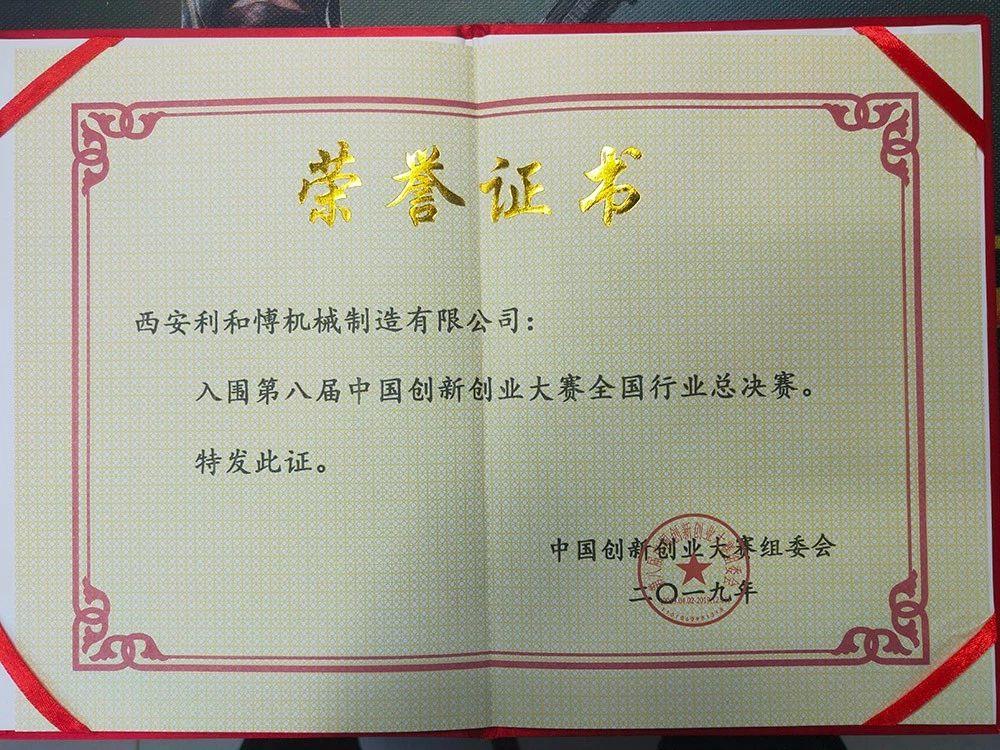 荣誉证书
西安利和愽机械制造有限公司：
入围第八届中国创新创业大赛全国行业总决赛。
特发此证。
中国创新创业大赛组委会
二〇一九年